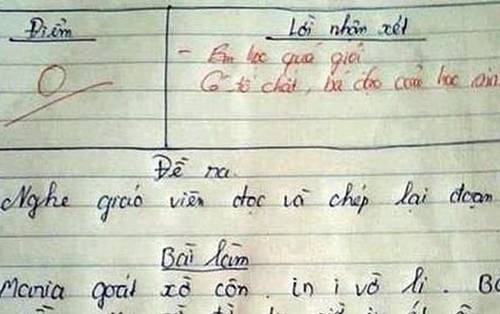 Điểm
Lời nhận xét
- Em học quá giỏi
0
Có tố chất, bá đạo của học sin
Đề ra.
Nghe giáo viên đọc và chép lại đoạn
Bài làm
Mania goát xồ côn. in i vở li. Bo